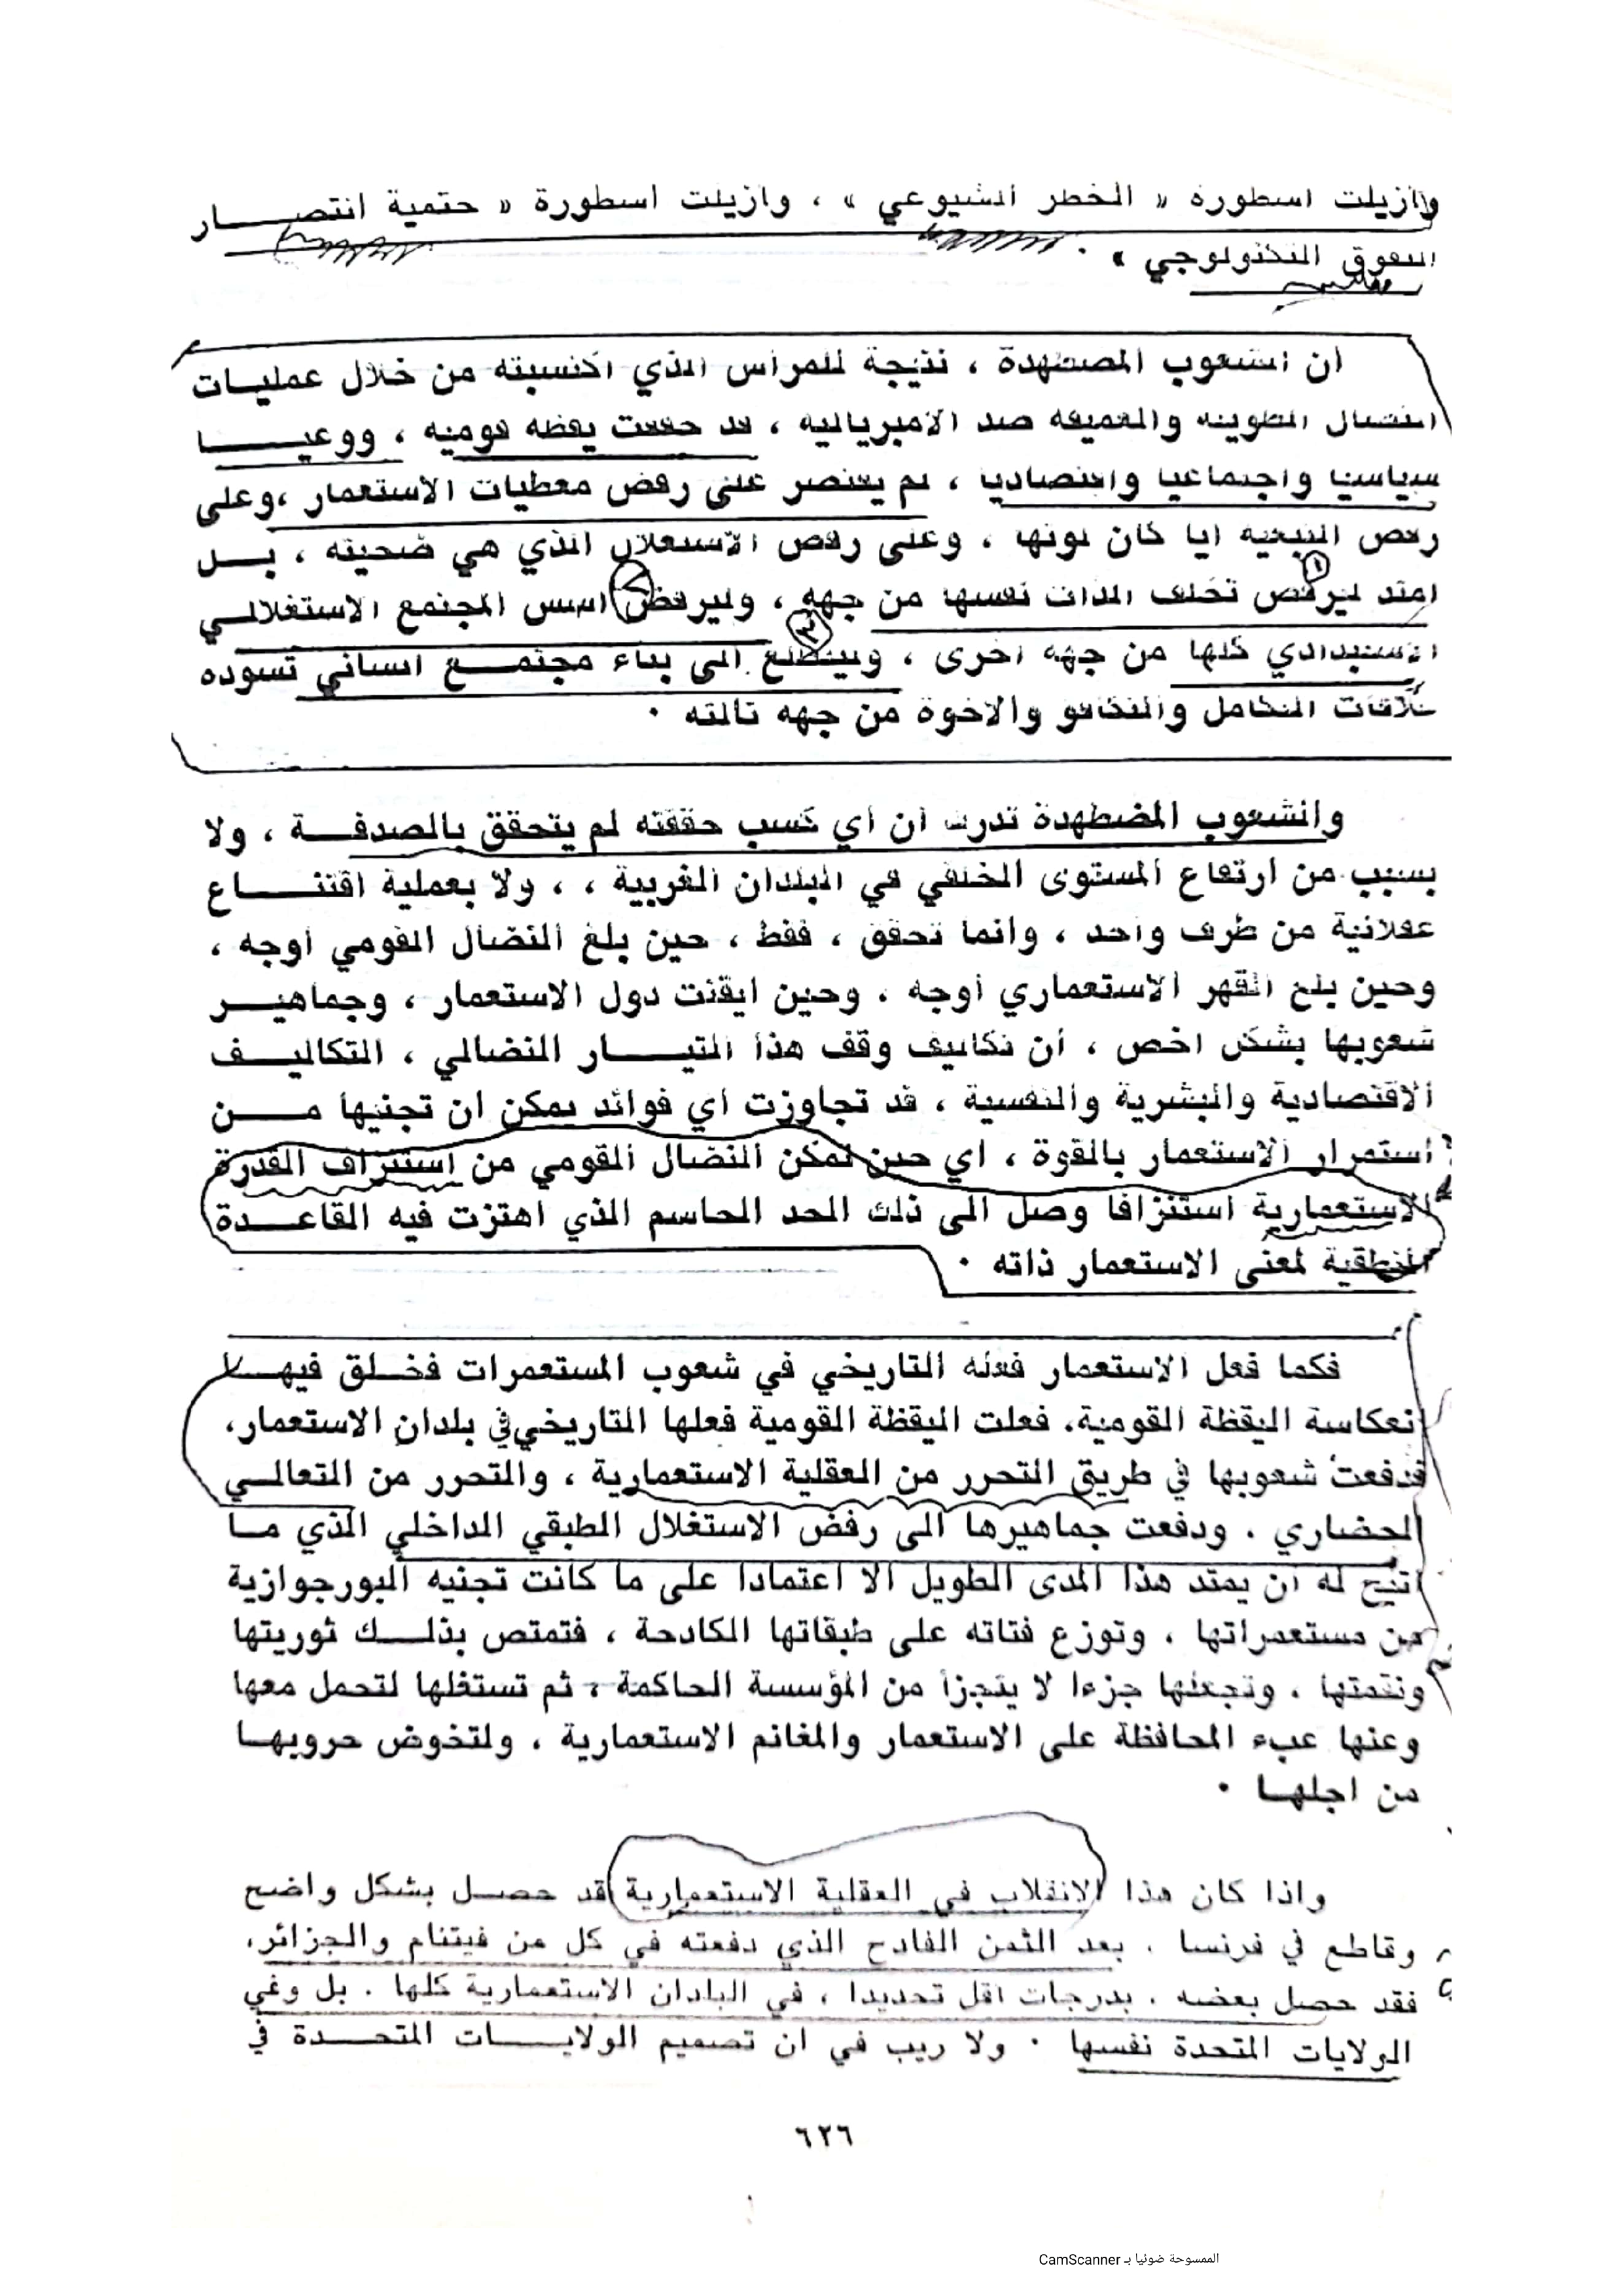 وازيلت اسطورة « الخطر الشيوعي » ، وازيلت اسطورة « حتمية انتصــار
التفوق التكنولوجي » .
ان الشعوب المضطهدة ، نتيجة للمراس الذي اكتسبته من خلال عمليـات
النضال الطويلة والعميقة ضد الامبريالية ، قد حققت يقظة قومية ، ووعيـــا
سياسيا واجتماعيا واقتصاديا ، لم يقتصر على رفض معطيات الاستعمار ،وعلى
رفض التبعية ايا كان لونها ، وعلى رفض الاستغلال الذي هي ضحيته ، بــل
امتد ليرفض تخلف الذات نفسها من جهة ، وليرفض اسس المجتمع الاستغلالـي
الاستبدادي كلها من جهة اخرى ، وليتطلع الى بناء مجتمــع انساني تسوده
علاقات التكامل والتكافؤ والاخوة من جهة ثالثة .
١
٢
٣
والشعوب المضطهدة تدرك ان اي كسب حققته لم يتحقق بالصدفــة ، ولا
بسبب من ارتفاع المستوى الخلقي في البلدان الغربية ، ، ولا بعملية اقتنــاع
عقلانية من طرف واحد ، وانما تحقق ، فقط ، حين بلغ النضال القومي اوجه ،
وحين بلغ القهر الاستعماري اوجه ، وحين ايقنت دول الاستعمار ، وجماهيــر
شعوبها بشكل اخص ، ان تكاليف وقف هذا التيــــار النضالي ، التكاليــف
الاقتصادية والبشرية والنفسية ، قد تجاوزت اي فوائد يمكن ان تجنيها مــــن
استمرار الاستعمار بالقوة ، اي حين تمكن النضال القومي من استنزاف القدرة
الاستعمارية استنزافا وصل الى ذلك الحد الحاسم الذي اهتزت فيه القاعــدة
المنطقية لمعنى الاستعمار ذاته .
فكما فعل الاستعمار فعله التاريخي في شعوب المستعمرات فخـلق فيهــا
انعكاسة اليقظة القومية، فعلت اليقظة القومية فعلها التاريخي في بلدان الاستعمار،
فدفعت شعوبها في طريق التحرر من العقلية الاستعمارية ، والتحرر من التعالـي
الحضاري . ودفعت جماهيرها الى رفض الاستغلال الطبقي الداخلي الذي مــا
اتيح له ان يمتد هذا المدى الطويل الا اعتمادا على ما كانت تجنيه البورجوازية
من مستعمراتها ، وتوزع فتاته على طبقاتها الكادحة ، فتمتص بذلــك ثوريتها
ونقمتها ، وتجعلها جزءا لا يتجزأ من المؤسسة الحاكمة ، ثم تستغلها لتحمل معها
وعنها عبء المحافظة على الاستعمار والمغانم الاستعمارية ، ولتخوض حروبهــا
من اجلهــا .
واذا كان هذا الانقلاب في العقلية الاستعمارية قد حصــل بشكل واضح
وقاطع في فرنسا ، بعد الثمن الفادح الذي دفعته في كل من فيتنام والجزائر،
فقد حصل بعضه ، بدرجات اقل تحديدا ، في البلدان الاستعمارية كلها ، بل وفي
الولايات المتحدة نفسها . ولا ريب في ان تصميم الولايــــات المتحــــدة في
٦٢٦
الممسوحة ضوئيا بـ CamScanner